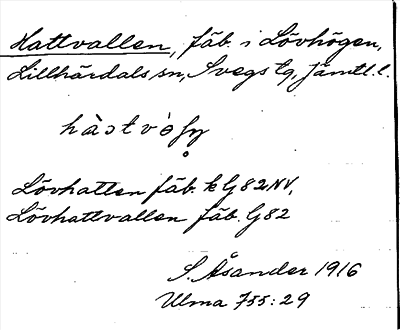 Hattvallen, fäb. i Lövhögen,
Lillhärdals sn, Svegs tg, Jämtl. l.
Lövhatten fäb. k G82NV,
Lövhattvallen fäb. G82
S. Åsander 1916
Ulma 755:29